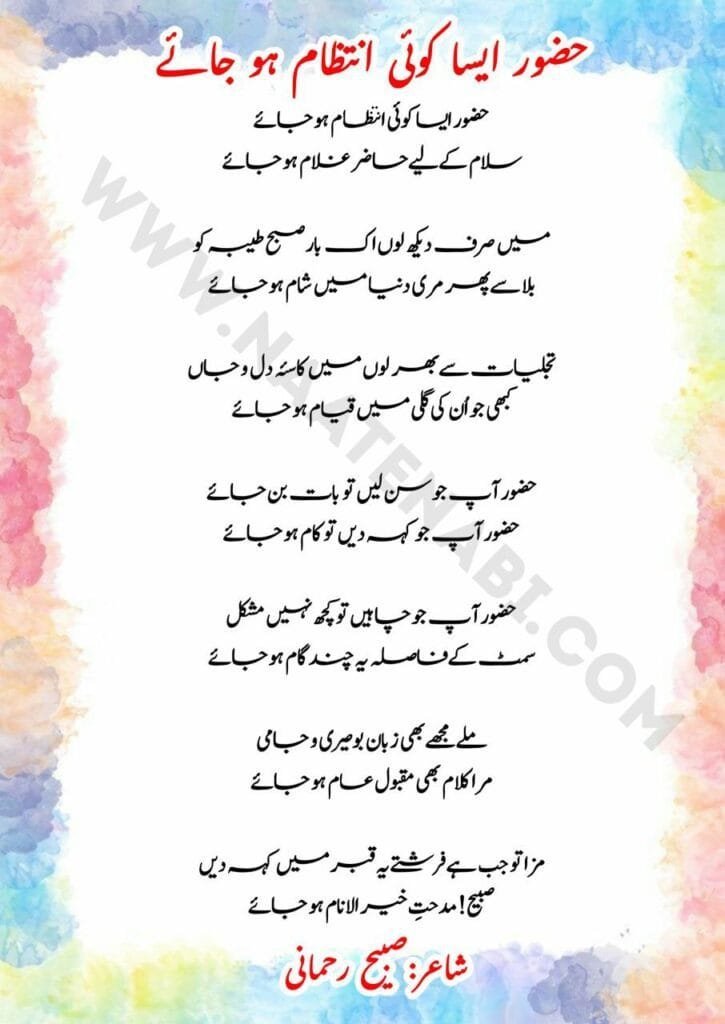 حضور ایسا کوئی انتظام ہو جائے
حضور ایسا کوئی انتظام ہو جائے
سلام کے لیے حاضر غلام ہو جائے
میں صرف دیکھ لوں اک بار صبح طیبہ کو
بلا سے پھر مری دنیا میں شام ہو جائے
تجلیات سے بھر لوں میں کاسئہ دل و جاں
کبھی جو اُن کی گلی میں قیام ہو جائے
حضور آپ جو سن لیں تو بات بن جائے
حضور آپ جو کہہ دیں تو کام ہو جائے
حضور آپ جو چاہیں تو کچھ نہیں مشکل
سمٹ کے فاصلہ یہ چند گام ہو جائے
ملے مجھے بھی زبان بوصیری و جامی
مرا کلام بھی مقبول عام ہو جائے
مزا تو جب ہے فرشتے یہ قبر میں کہہ دیں
صبیح! مدحتِ خیر الانام ہو جائے
شاعر: صبیح رحمانی
WWW.NAATENABI.COM